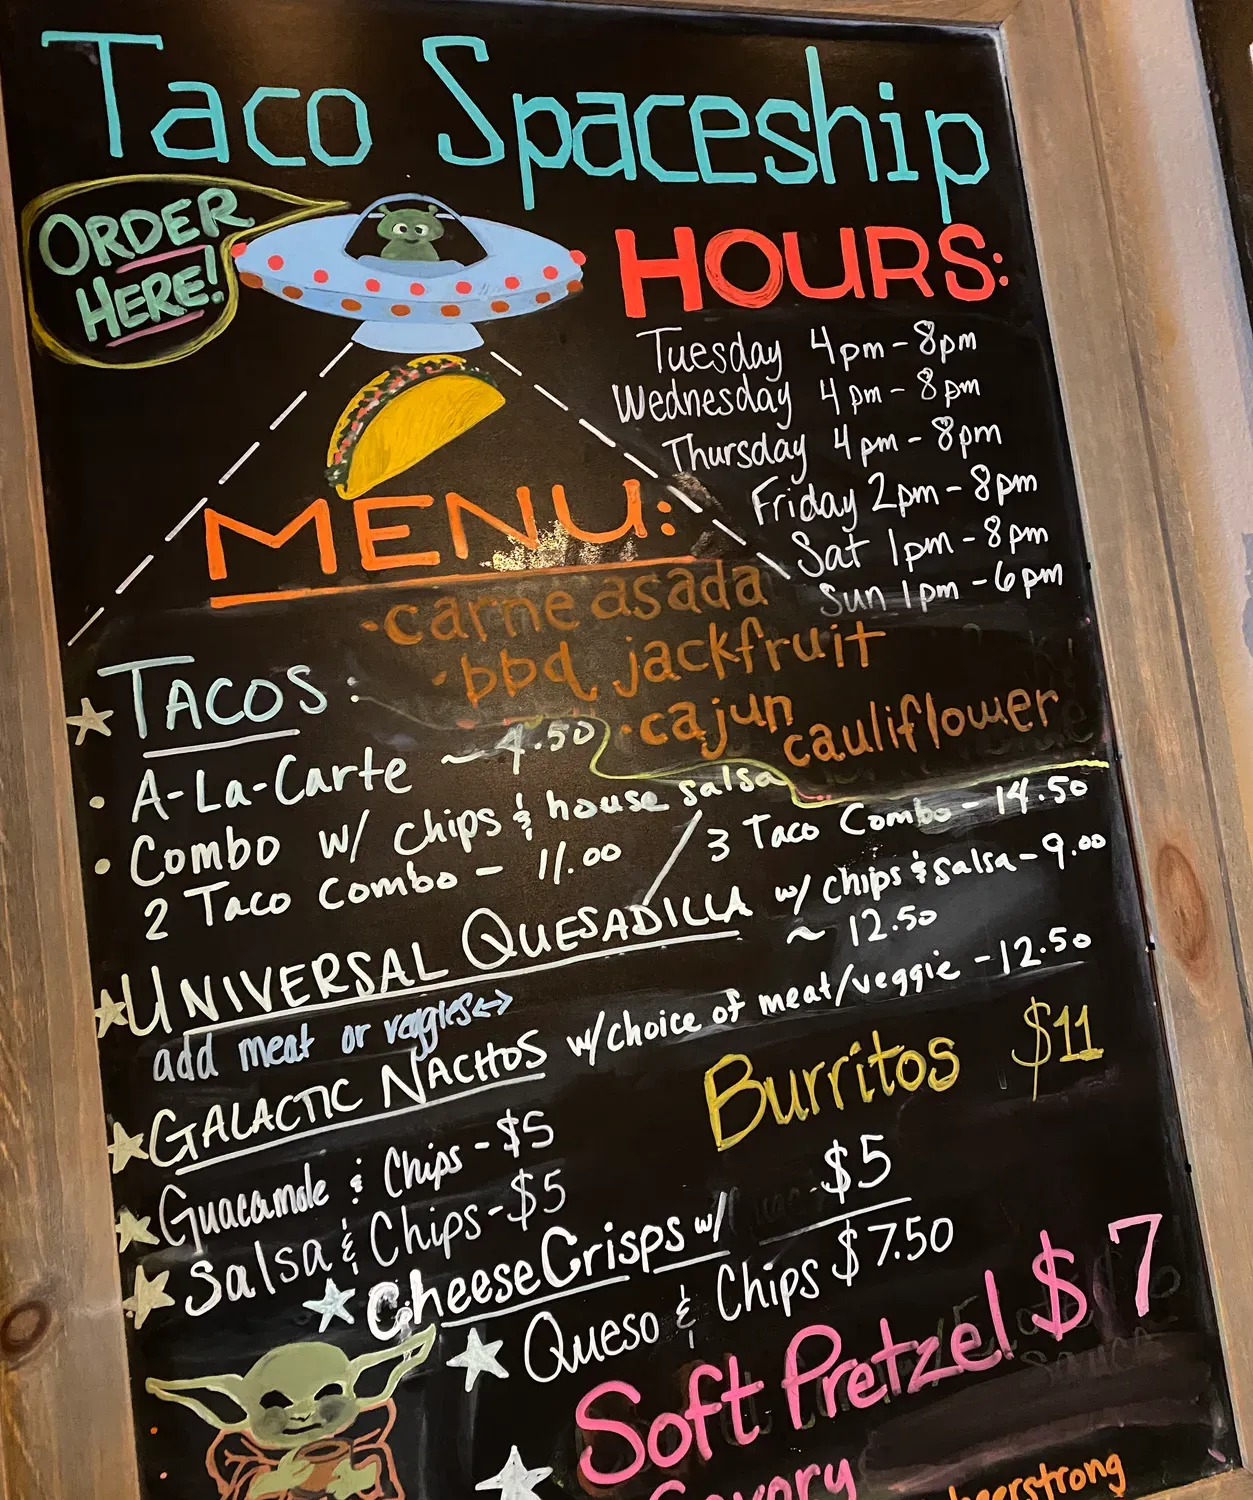 Taco Spaceship
ORDER
HERE!
HOURS:
Tuesday 4pm - 8pm
Wednesday 4pm - 8pm
Thursday 4pm - 8pm
Friday 2pm - 8pm
Sat 1pm - 8pm
Sun 1pm - 6pm
MENU:
• carne asada
• bbq jackfruit
• cajun cauliflower
TACOS:
• A-La-Carte ~ 4.50
• Combo w/ chips & house salsa
2 Taco Combo - 11.00 / 3 Taco Combo - 14.50
UNIVERSAL QUESADILLA w/ chips & salsa - 9.00
add meat or veggies ↔ ~ 12.50
GALACTIC NACHOS w/choice of meat/veggie - 12.50
Burritos $11
Guacamole & Chips - $5
Salsa & Chips - $5
Cheese Crisps w/ $5
Queso & Chips $7.50
Soft Pretzel $7
Savory